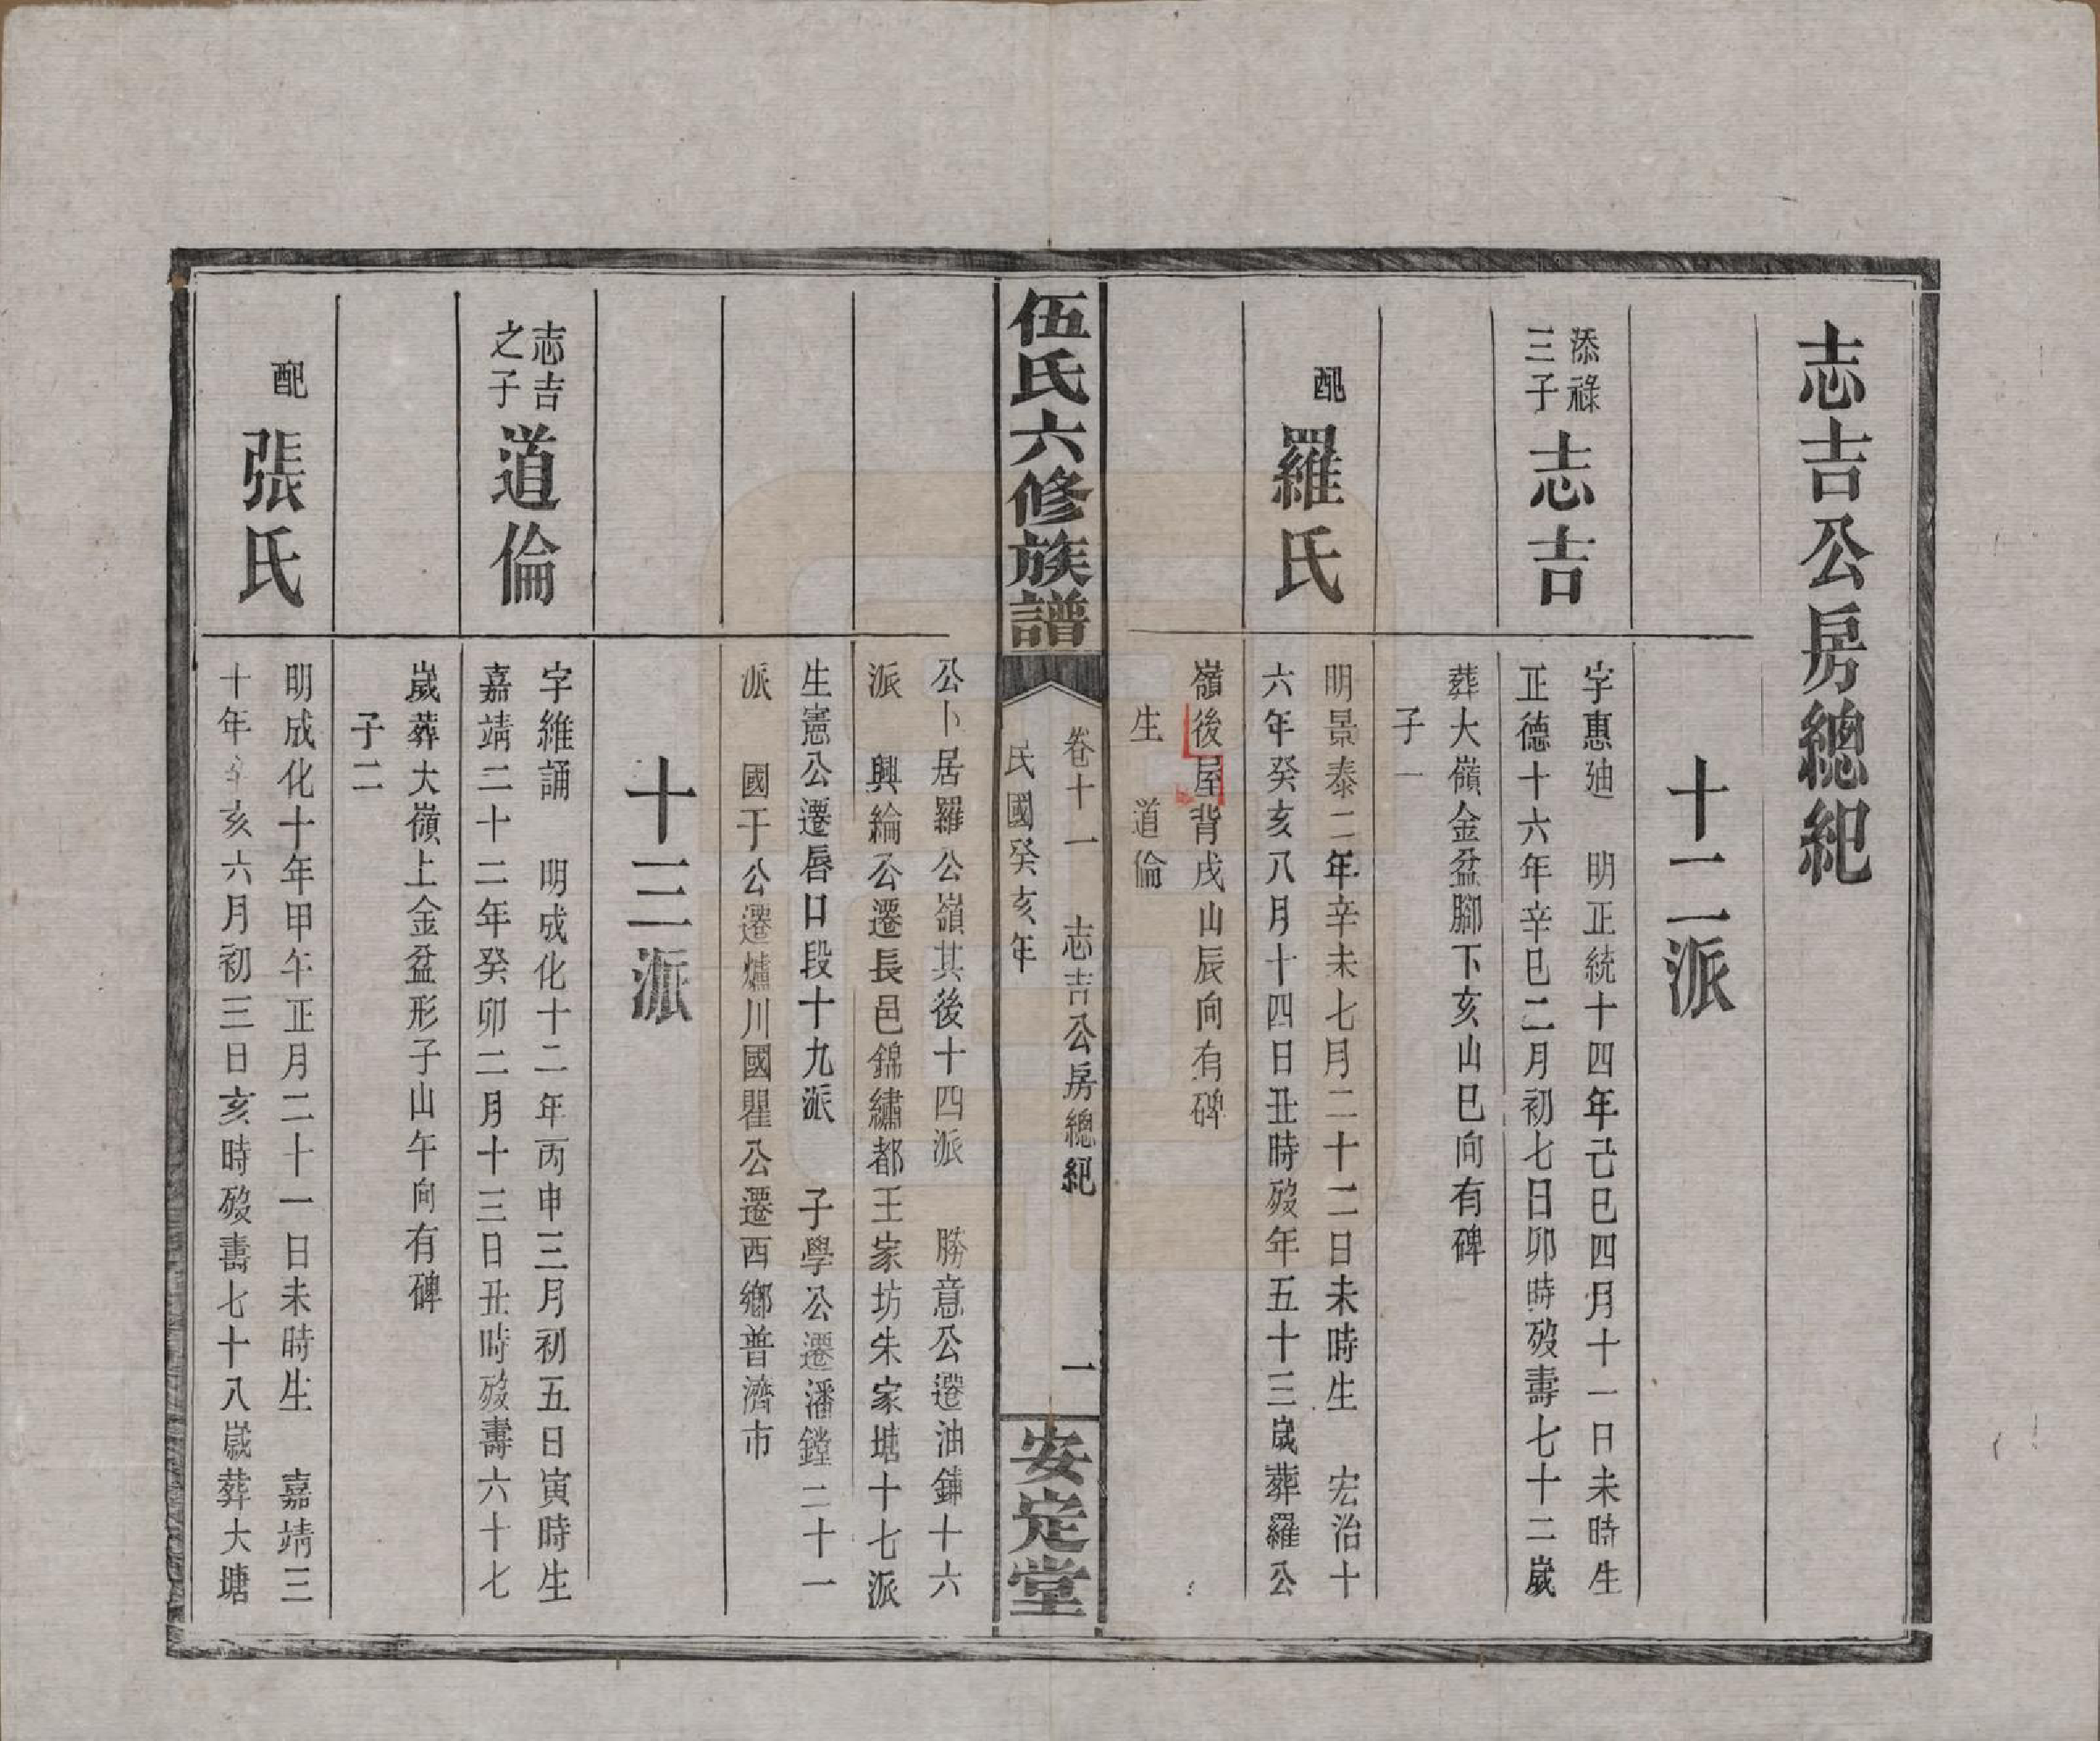 志吉公房總紀
十二派
添祿
三子
志吉
字惠廸　明正統十四年己巳四月十一日未時生
正德十六年辛巳二月初七日卯時歿壽七十二歲
葬大嶺金盆腳下亥山巳向有碑
子一
配
羅氏
明景泰二年辛未七月二十二日未時生　宏治十
六年癸亥八月十四日丑時歿年五十三歲葬羅公
嶺後屋背戌山辰向有碑
生　道倫
伍氏六修族譜
卷十一　志吉公房總紀　一
民國癸亥年
安定堂
公卜居羅公嶺其後十四派　勝意公遷油鋪十六
派　興綸公遷長邑錦繡都王家坊朱家塘十七派
生憲公遷唇口段十九派　子學公遷潘鏜二十一
派　國于公遷爐川國瞿公遷西鄉普濟市
十三派
志吉
之子
道倫
字維誦　明成化十二年丙申三月初五日寅時生
嘉靖二十二年癸卯二月十三日丑時歿壽六十七
歲葬大嶺上金盆形子山午向有碑
子二
配
張氏
明成化十年甲午正月二十一日未時生　嘉靖三
十年辛亥六月初三日亥時歿壽七十八歲葬大塘